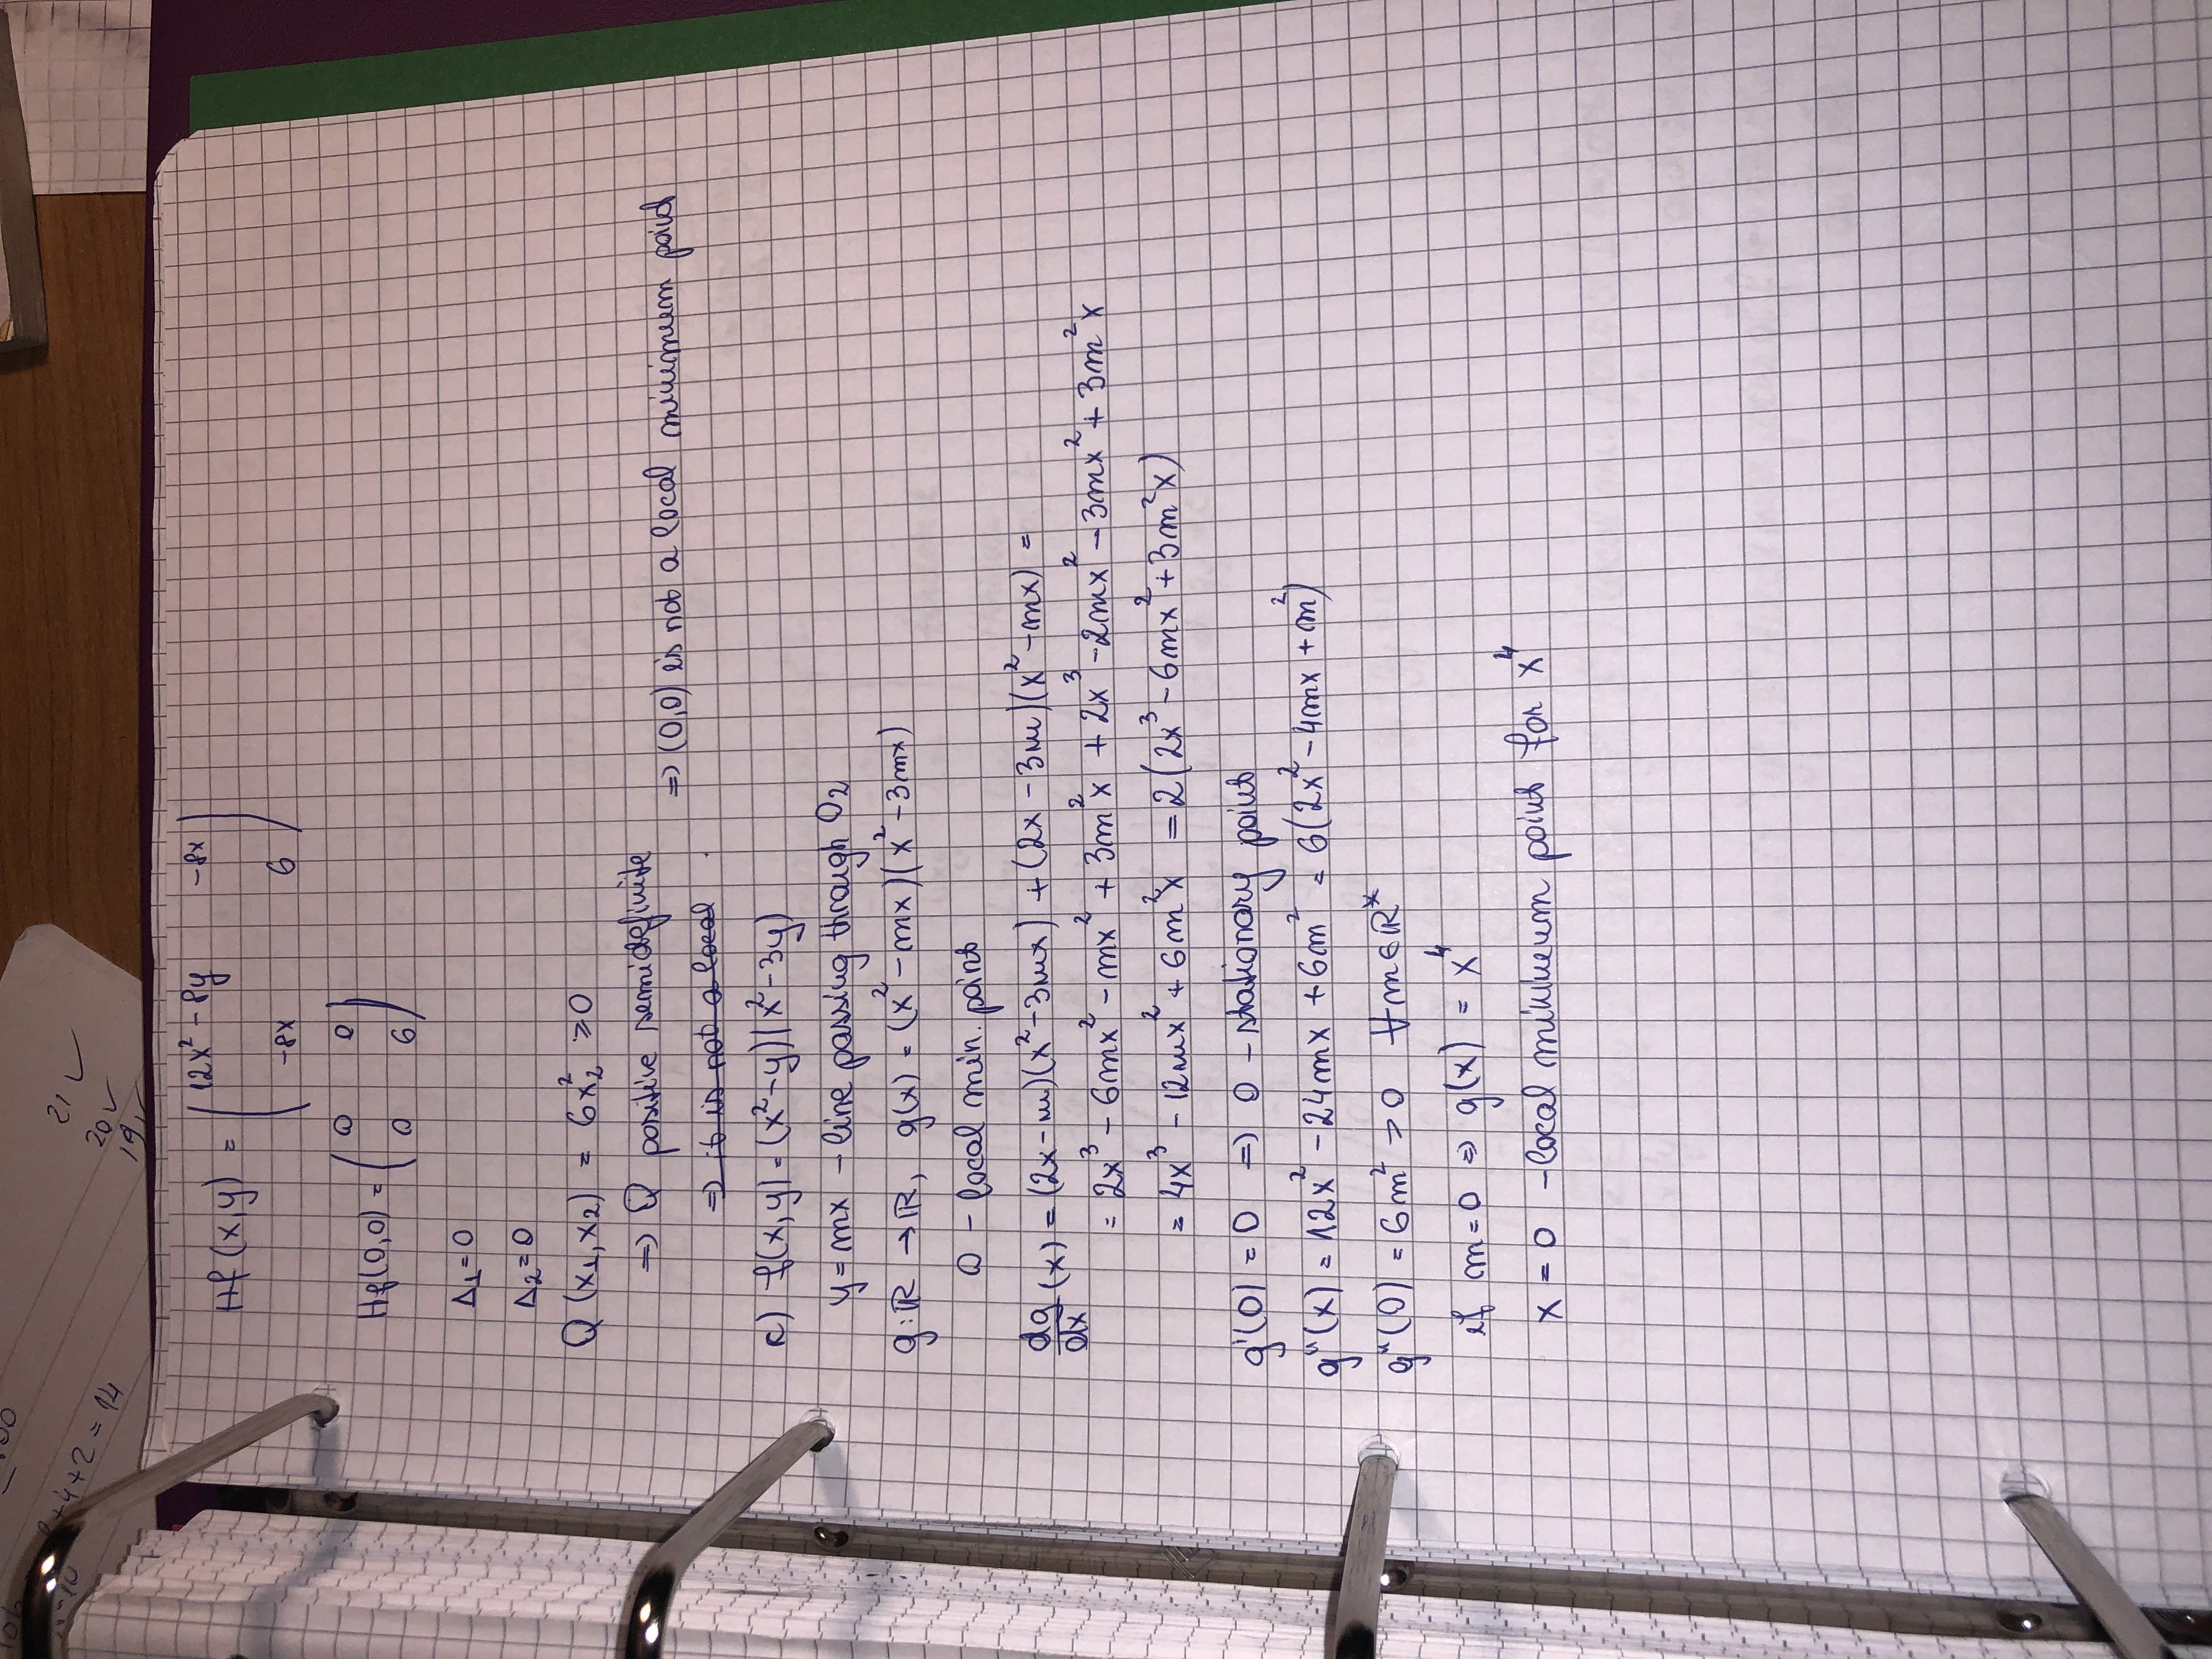 +4+2 = 14
21 ✓
20 ✓
19 ✓
Hf(x,y) = ( 12x² - 8y -8x
-8x 6 )
Hf(0,0) = ( 0 0
0 6 )
Δ₁ = 0
Δ₂ = 0
Q(x₁,x₂) = 6x₂² ≥ 0
=> Q positive semidefinite => (0,0) is not a local minimum point
=> it is not a local
c) f(x,y) = (x²-y)(x²-3y)
y = mx - line passing through O₂
g: ℝ → ℝ, g(x) = (x² - mx)(x² - 3mx)
0 - local min. point
dg/dx (x) = (2x - m)(x² - 3mx) + (2x - 3m)(x² - mx) =
= 2x³ - 6mx² - mx² + 3m²x + 2x³ - 2mx² - 3mx² + 3m²x
= 4x³ - 12mx² + 6m²x = 2(2x³ - 6mx² + 3m²x)
g'(0) = 0 => 0 - stationary point
g''(x) = 12x² - 24mx + 6m² = 6(2x² - 4mx + m²)
g''(0) = 6m² > 0 ∀m∈ℝ*
if m = 0 => g(x) = x⁴
x = 0 - local minimum point for x⁴